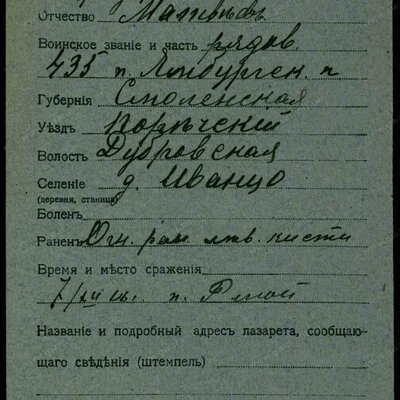 Отчество Матвѣевъ
Воинское званіе и часть рядов.
435 п. Ямбургск. п
Губернія Смоленская
Уѣздъ Порѣчскій
Волость Дубровская
Селеніе д. Иванцо
(деревня, станица)
Боленъ
Раненъ Огн. ран. лѣв. кисти
Время и мѣсто сраженія
7/XII 16 г.
Названіе и подробный адресъ лазарета, сообщаю-
щаго свѣдѣнія (штемпель)